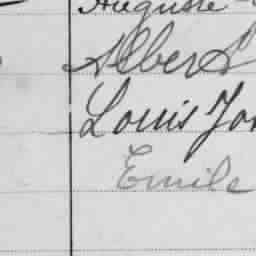 Auguste
Albert
Louis Jo
Emile